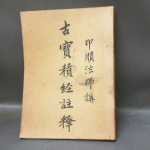 印順法師講
古寶積經註释